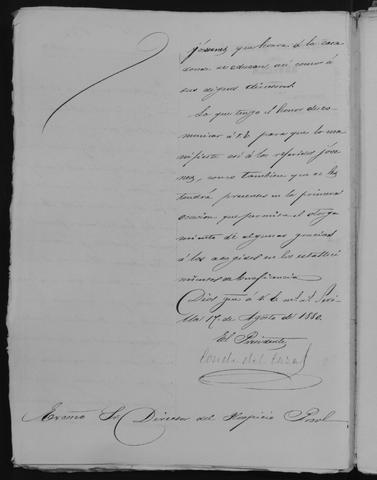 jóvenes que honra á la casa
donde se educan, así como á
sus dignos
Lo que tengo el honor de co-
municar á V.E. para que lo ma-
nifieste así á los referidos jóve-
nes, como tambien que se les
tendrá presentes en la primera
ocasion que permita el otorga-
miento de algunas gracias
á los acogidos en los estableci-
mientos de beneficencia
Dios gue á V.E. m.s a.s Sevi-
lla 17 de Agosto de 1880.
El Presidente
Conde del
Exmo Sr Director del Hospicio Prov.l